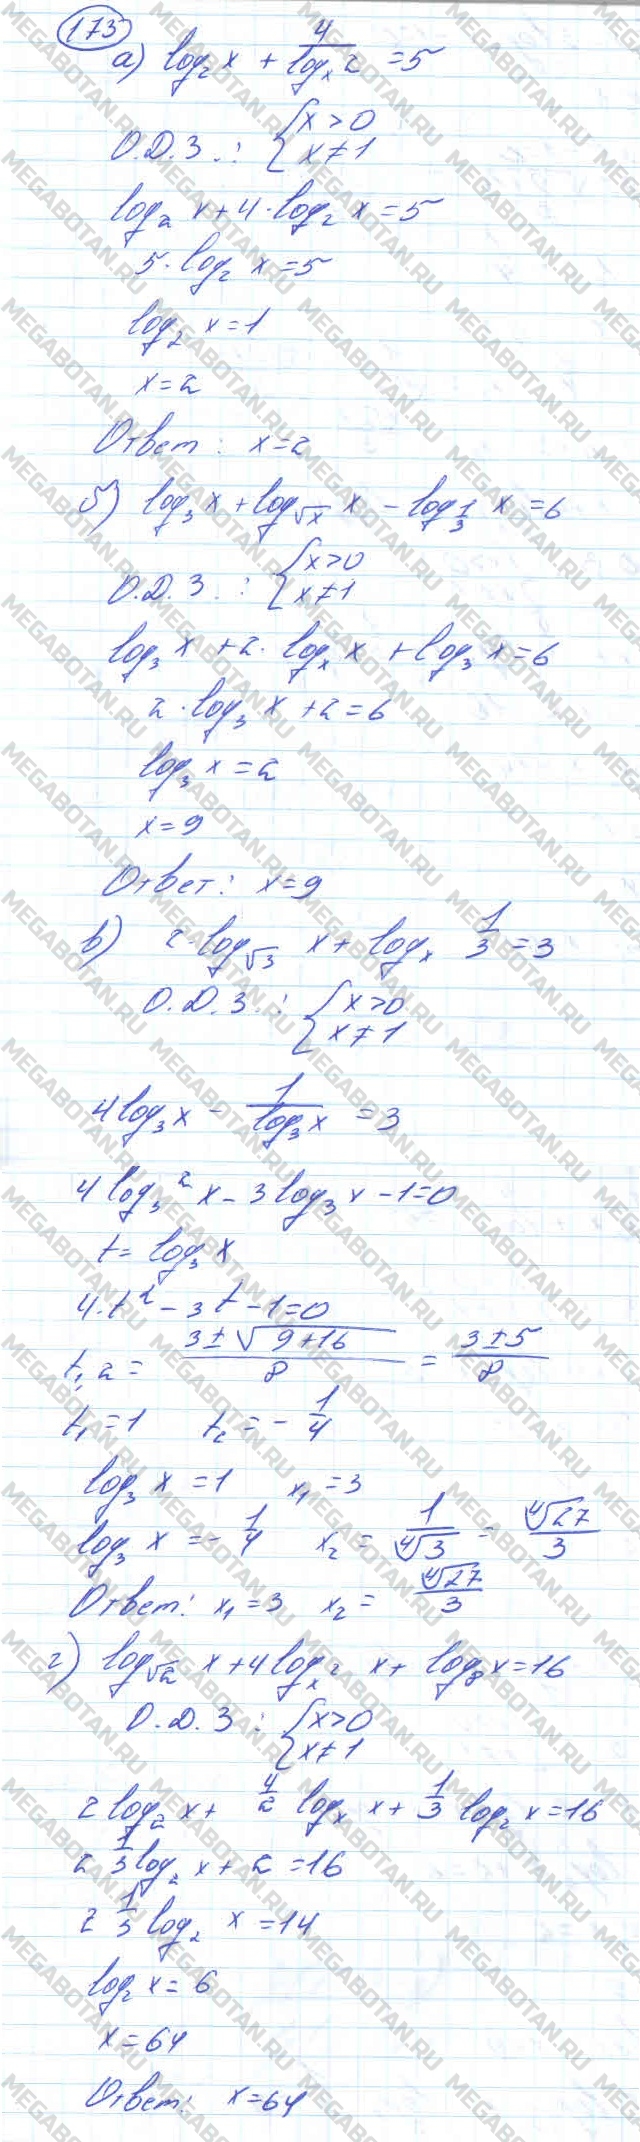 173
а) log₂ x + 4/(logₓ 2) = 5
О.Д.З.: { x > 0
x ≠ 1
log₂ x + 4 · log₂ x = 5
5 · log₂ x = 5
log₂ x = 1
x = 2
Ответ: x = 2
б) log₃ x + log_√x x − log_1/3 x = 6
О.Д.З.: { x > 0
x ≠ 1
log₃ x + 2 · logₓ x + log₃ x = 6
2 · log₃ x + 2 = 6
log₃ x = 2
x = 9
Ответ: x = 9
в) 2 · log_√3 x + logₓ 1/3 = 3
О.Д.З.: { x > 0
x ≠ 1
4 log₃ x − 1/(log₃ x) = 3
4 log₃² x − 3 log₃ x − 1 = 0
t = log₃ x
4 · t² − 3t − 1 = 0
t₁,₂ = (3 ± √(9 + 16))/8 = (3 ± 5)/8
t₁ = 1 t₂ = − 1/4
log₃ x = 1 x₁ = 3
log₃ x = − 1/4 x₂ = 1/⁴√3 = ⁴√27/3
Ответ: x₁ = 3 x₂ = ⁴√27/3
г) log_√2 x + 4 log_x² x + log₈ x = 16
О.Д.З.: { x > 0
x ≠ 1
2 log₂ x + 4/2 logₓ x + 1/3 log₂ x = 16
2 1/3 log₂ x + 2 = 16
2 1/3 log₂ x = 14
log₂ x = 6
x = 64
Ответ: x = 64
MEGABOTAN.RU